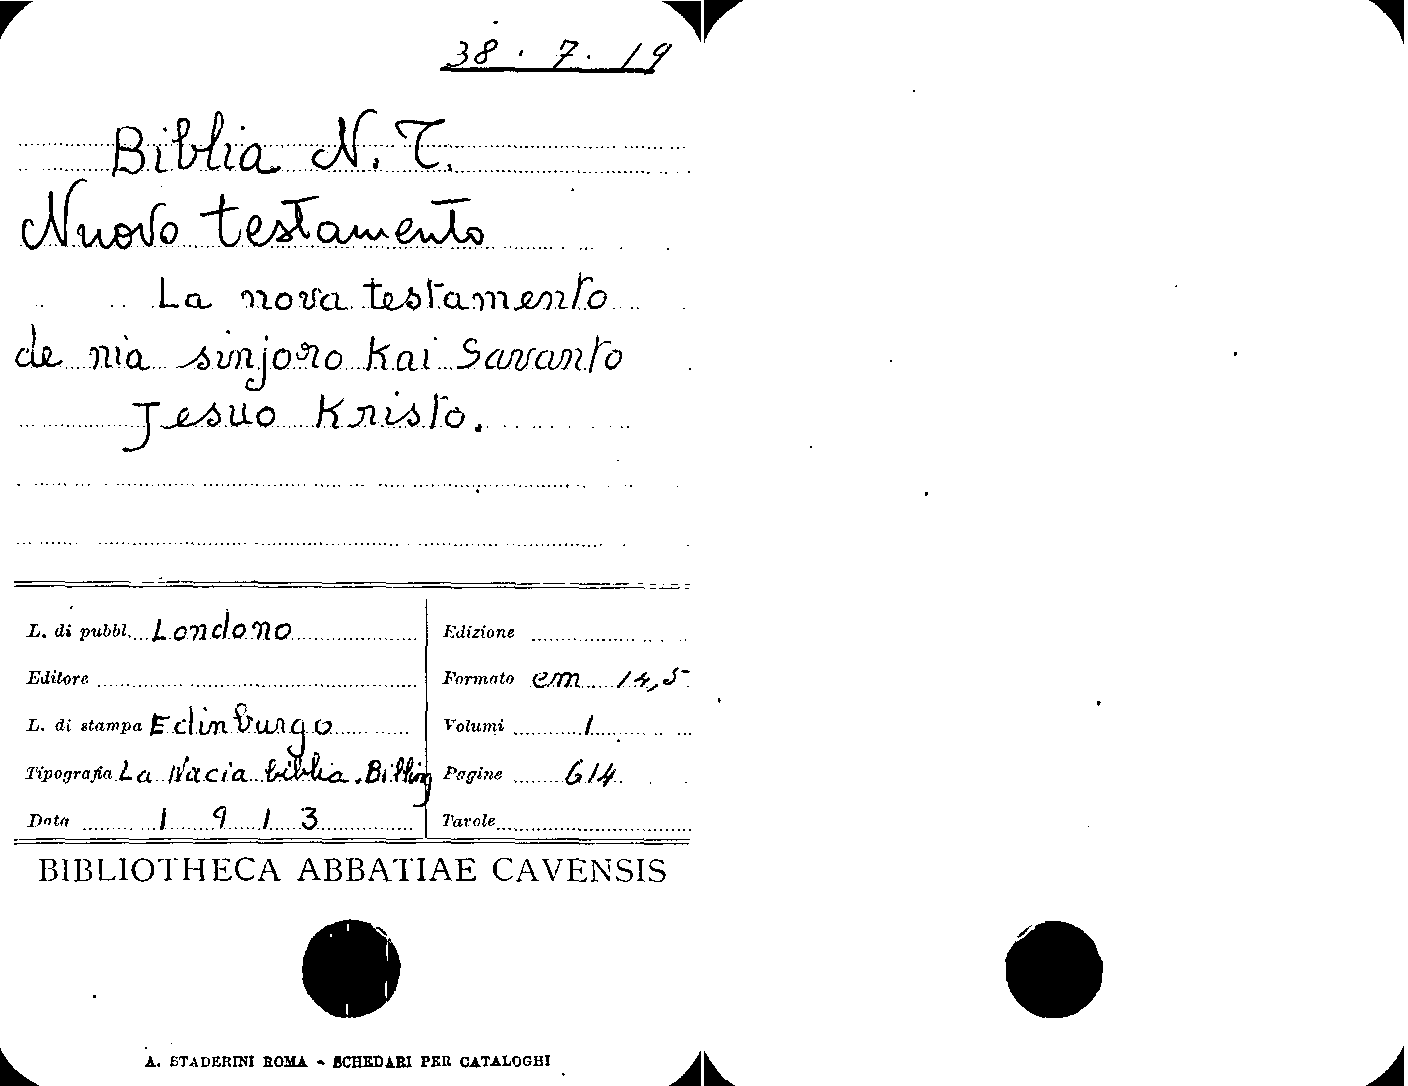 38 . 7 . 19
Biblia N. T.
Nuovo testamento
La nova testamento
de nia sinjoro Kai Savanto
Jesuo Kristo.
L. di pubbl. Londono
Edizione
Editore
Formato em 14,5
L. di stampa Edinburgo
Volumi 1
Tipografia La Nacia biblia. Billing
Pagine 614
Data 1 9 1 3
Tavole
BIBLIOTHECA ABBATIAE CAVENSIS
A. STADERINI ROMA - SCHEDARI PER CATALOGHI